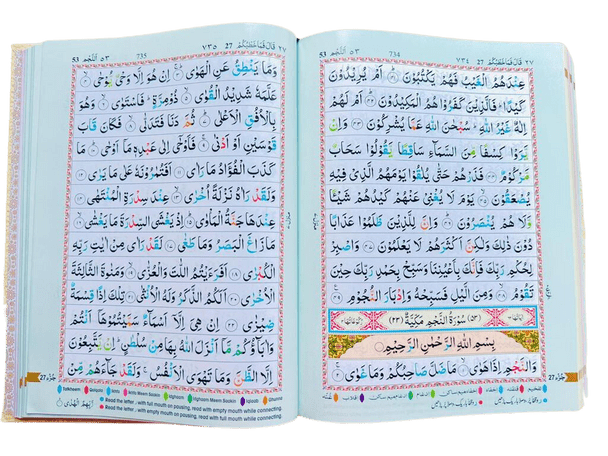 ٢٧ قَالَ فَمَا خَطْبُكُمْ 27 ٧٣٤ 734 ٥٣ اَلنَّجْم 53
عِنْدَهُمُ الْغَيْبُ فَهُمْ يَكْتُبُوْنَ ﴿٤١﴾ اَمْ يُرِيْدُوْنَ
كَيْدًا ؕ فَالَّذِيْنَ كَفَرُوْا هُمُ الْمَكِيْدُوْنَ ﴿٤٢﴾ اَمْ لَهُمْ
اِلٰهٌ غَيْرُ اللّٰهِ ؕ سُبْحٰنَ اللّٰهِ عَمَّا يُشْرِكُوْنَ ﴿٤٣﴾ وَاِنْ
يَّرَوْا كِسْفًا مِّنَ السَّمَآءِ سَاقِطًا يَّقُوْلُوْا سَحَابٌ
مَّرْكُوْمٌ ﴿٤٤﴾ فَذَرْهُمْ حَتّٰى يُلٰقُوْا يَوْمَهُمُ الَّذِيْ فِيْهِ
يُصْعَقُوْنَ ﴿٤٥﴾ يَوْمَ لَا يُغْنِيْ عَنْهُمْ كَيْدُهُمْ شَيْئًا
وَّلَا هُمْ يُنْصَرُوْنَ ﴿٤٦﴾ وَاِنَّ لِلَّذِيْنَ ظَلَمُوْا عَذَابًا
دُوْنَ ذٰلِكَ وَلٰكِنَّ اَكْثَرَهُمْ لَا يَعْلَمُوْنَ ﴿٤٧﴾ وَاصْبِرْ
لِحُكْمِ رَبِّكَ فَاِنَّكَ بِاَعْيُنِنَا وَسَبِّحْ بِحَمْدِ رَبِّكَ حِيْنَ
تَقُوْمُ ﴿٤٨﴾ وَمِنَ الَّيْلِ فَسَبِّحْهُ وَاِدْبَارَ النُّجُوْمِ ﴿٤٩﴾
(٥٣) سُوْرَةُ النَّجْمِ مَكِّيَّةٌ (٢٣)
بِسْمِ اللّٰهِ الرَّحْمٰنِ الرَّحِيْمِ
وَالنَّجْمِ اِذَا هَوٰى ﴿١﴾ مَا ضَلَّ صَاحِبُكُمْ وَمَا غَوٰى ﴿٢﴾
جُزْء 27
٢٧ قَالَ فَمَا خَطْبُكُمْ 27 ٧٣٥ 735 ٥٣ اَلنَّجْم 53
وَمَا يَنْطِقُ عَنِ الْهَوٰى ﴿٣﴾ اِنْ هُوَ اِلَّا وَحْيٌ يُّوْحٰى ﴿٤﴾
عَلَّمَهٗ شَدِيْدُ الْقُوٰى ﴿٥﴾ ذُوْ مِرَّةٍ ؕ فَاسْتَوٰى ﴿٦﴾ وَهُوَ
بِالْاُفُقِ الْاَعْلٰى ﴿٧﴾ ثُمَّ دَنَا فَتَدَلّٰى ﴿٨﴾ فَكَانَ قَابَ
قَوْسَيْنِ اَوْ اَدْنٰى ﴿٩﴾ فَاَوْحٰٓى اِلٰى عَبْدِهٖ مَآ اَوْحٰى ﴿١٠﴾ مَا
كَذَبَ الْفُؤَادُ مَا رَاٰى ﴿١١﴾ اَفَتُمٰرُوْنَهٗ عَلٰى مَا يَرٰى ﴿١٢﴾
وَلَقَدْ رَاٰهُ نَزْلَةً اُخْرٰى ﴿١٣﴾ عِنْدَ سِدْرَةِ الْمُنْتَهٰى ﴿١٤﴾
عِنْدَهَا جَنَّةُ الْمَاْوٰى ﴿١٥﴾ اِذْ يَغْشَى السِّدْرَةَ مَا يَغْشٰى ﴿١٦﴾
مَا زَاغَ الْبَصَرُ وَمَا طَغٰى ﴿١٧﴾ لَقَدْ رَاٰى مِنْ اٰيٰتِ رَبِّهِ
الْكُبْرٰى ﴿١٨﴾ اَفَرَءَيْتُمُ اللّٰتَ وَالْعُزّٰى ﴿١٩﴾ وَمَنٰوةَ الثَّالِثَةَ
الْاُخْرٰى ﴿٢٠﴾ اَلَكُمُ الذَّكَرُ وَلَهُ الْاُنْثٰى ﴿٢١﴾ تِلْكَ اِذًا قِسْمَةٌ
ضِيْزٰى ﴿٢٢﴾ اِنْ هِيَ اِلَّآ اَسْمَآءٌ سَمَّيْتُمُوْهَآ اَنْتُمْ
وَاٰبَآؤُكُمْ مَّآ اَنْزَلَ اللّٰهُ بِهَا مِنْ سُلْطٰنٍ ؕ اِنْ يَّتَّبِعُوْنَ
اِلَّا الظَّنَّ وَمَا تَهْوَى الْاَنْفُسُ ۚ وَلَقَدْ جَآءَهُمْ مِّنْ
27 جُزْء
Tafkheem Qalqala Qalb Ikhfa Meem Saakin Idgham Idgham Meem Saakin Iqlaab Ghunna
Read the letter, with full mouth on pausing, read with empty mouth while connecting.
Read the letter, with empty mouth on pausing, read with full mouth while connecting.
رَبِّهِمُ الْهُدٰى